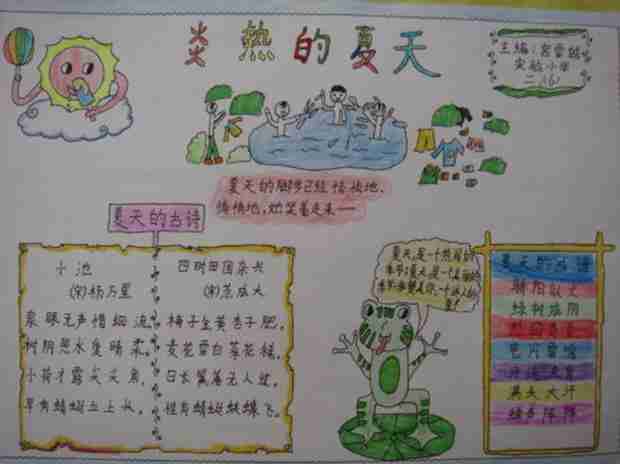 炎热的夏天
主编:
实验小学
二、(6)
夏天的脚步已经悄悄地、
悄悄地,她笑着走来——
夏天的古诗
小池
(宋)杨万里
泉眼无声惜细流,
树阴照水爱晴柔。
小荷才露尖尖角,
早有蜻蜓立上头。
四时田园杂兴
(宋)范成大
梅子金黄杏子肥,
麦花雪白菜花稀。
日长篱落无人过,
惟有蜻蜓蛱蝶飞。
夏天,是一个热闹的
季节;夏天,是一个美丽的
夏天的成语
骄阳似火
绿树成阴
烈日炎炎
电闪雷鸣
汗流浃背
满头大汗